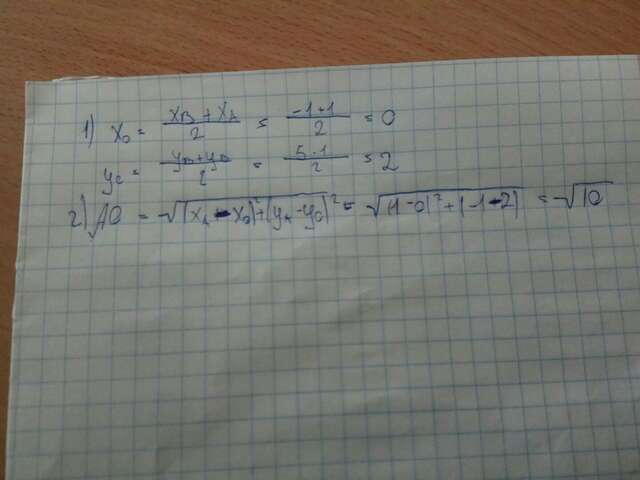 1) x₀ = (x_B + x_A)/2 = (-1+1)/2 = 0
y₀ = (y_B + y_A)/2 = (5-1)/2 = 2
2) AO = √((x_A - x₀)² + (y_A - y₀)²) = √((1-0)² + (-1-2)) = √10